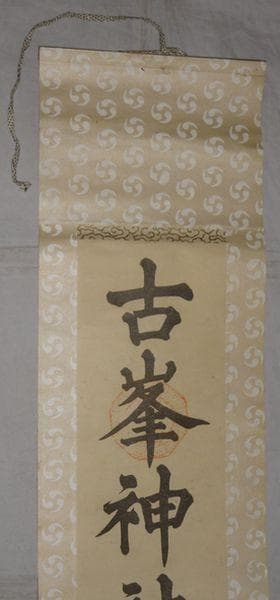 古峯神